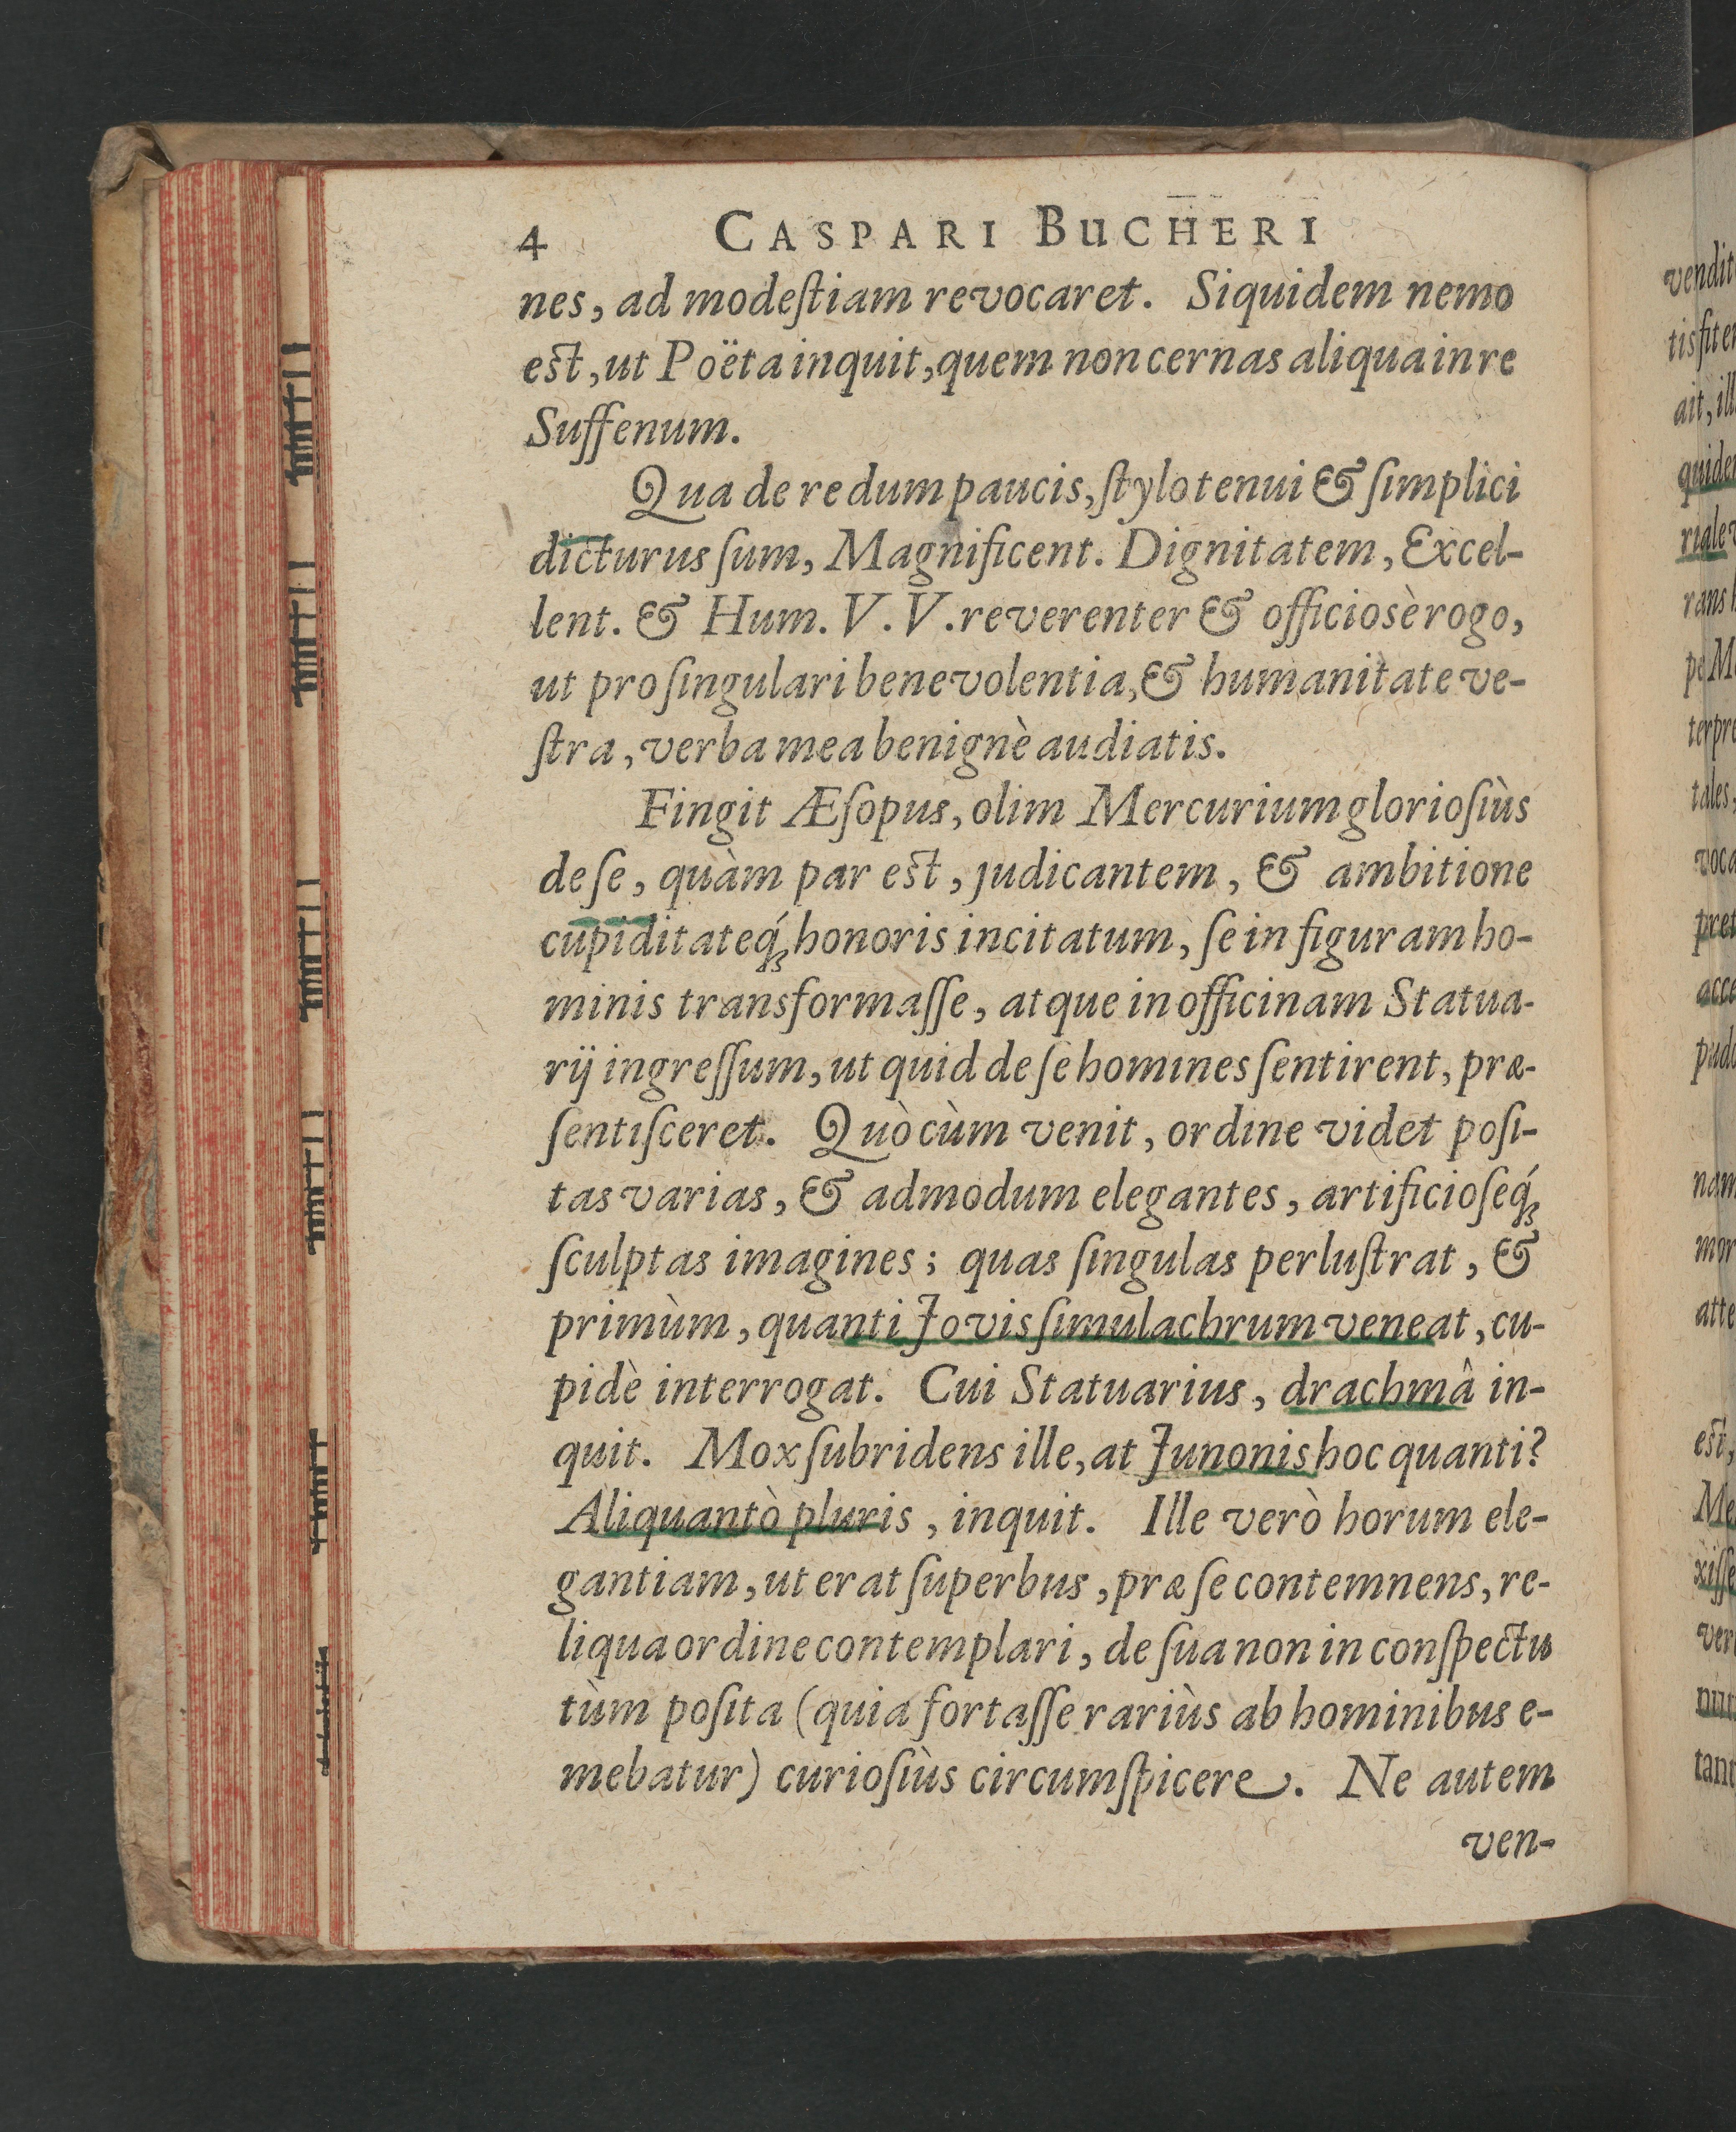 4 CASPARI BUCHERI
nes, ad modeſtiam revocaret. Siquidem nemo
est, ut Poëta inquit, quem non cernas aliqua in re
Suffenum.
Qua de re dum paucis, ſtylo tenui & ſimplici
dicturus ſum, Magnificent. Dignitatem, Excel-
lent. & Hum. V. V. reverenter & officiosè rogo,
ut pro ſingulari benevolentia, & humanitate ve-
ſtra, verba mea benignè audiatis.
Fingit Æſopus, olim Mercurium glorioſiùs
de ſe, quàm par est, judicantem, & ambitione
cupiditateq́; honoris incitatum, ſe in figuram ho-
minis transformaſſe, atque in officinam Statua-
rij ingreſſum, ut quid de ſe homines ſentirent, præ-
ſentiſceret. Quò cùm venit, ordine videt poſi-
tas varias, & admodum elegantes, artificioſeq́;
ſculptas imagines; quas ſingulas perluſtrat, &
primùm, quanti Jovis ſimulachrum veneat, cu-
pidè interrogat. Cui Statuarius, drachmâ in-
quit. Mox ſubridens ille, at Junonis hoc quanti?
Aliquantò pluris, inquit. Ille verò horum ele-
gantiam, ut erat ſuperbus, præ ſe contemnens, re-
liqua ordine contemplari, de ſua non in conſpectu
tùm poſita (quia fortaſſe rariùs ab hominibus e-
mebatur) curioſiùs circumſpicere. Ne autem
ven-